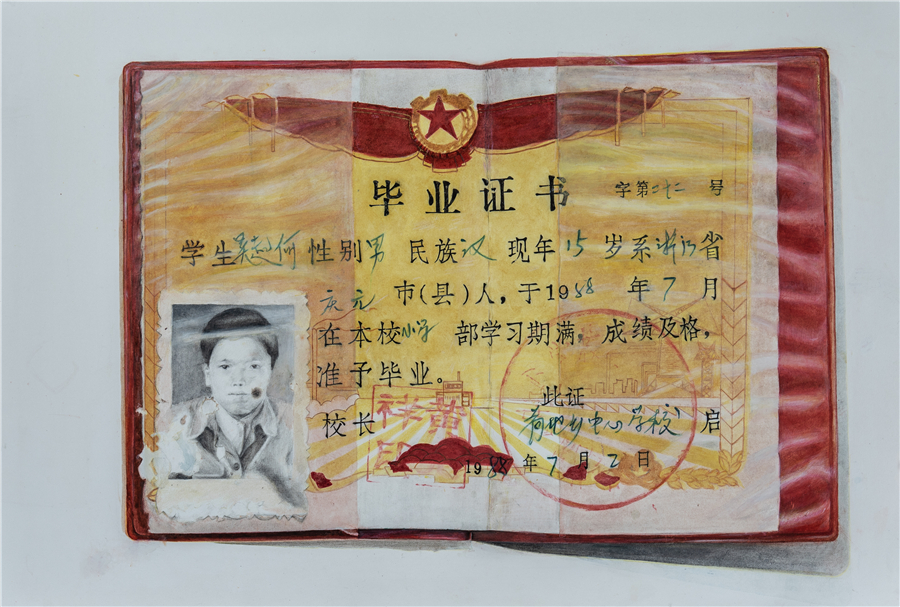 毕业证书 字第二十二号
学生吴志 性别男 民族汉 现年15岁系浙江省
庆元市(县)人,于1988年7月
在本校小学部学习期满,成绩及格,
准予毕业。
此证
校长 荷地乡中心学校 启
1988年7月2日